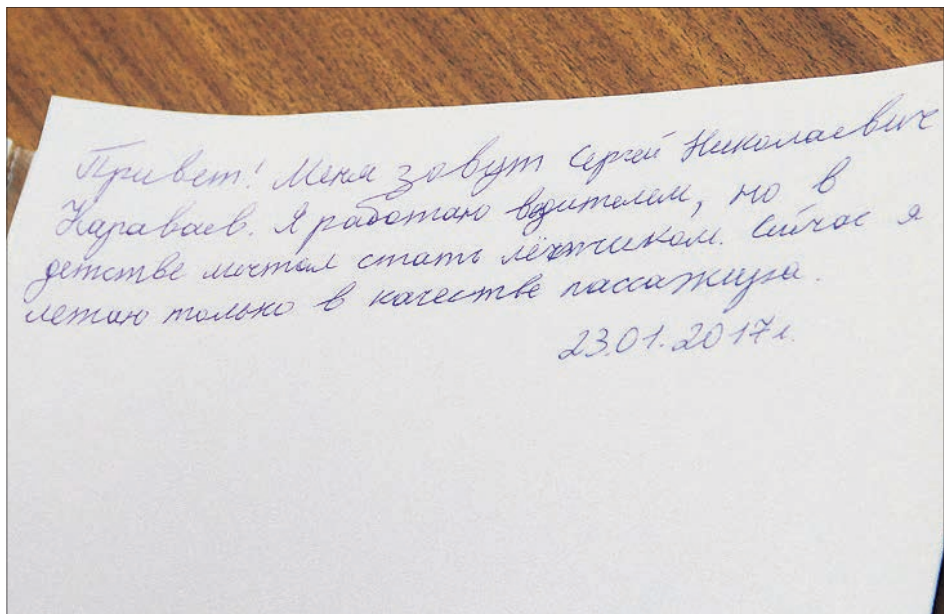 Привет! Меня зовут Сергей Николаевич
Караваев. Я работаю водителем, но в
детстве мечтал стать лётчиком. Сейчас я
летаю только в качестве пассажира.
23.01.2017г.